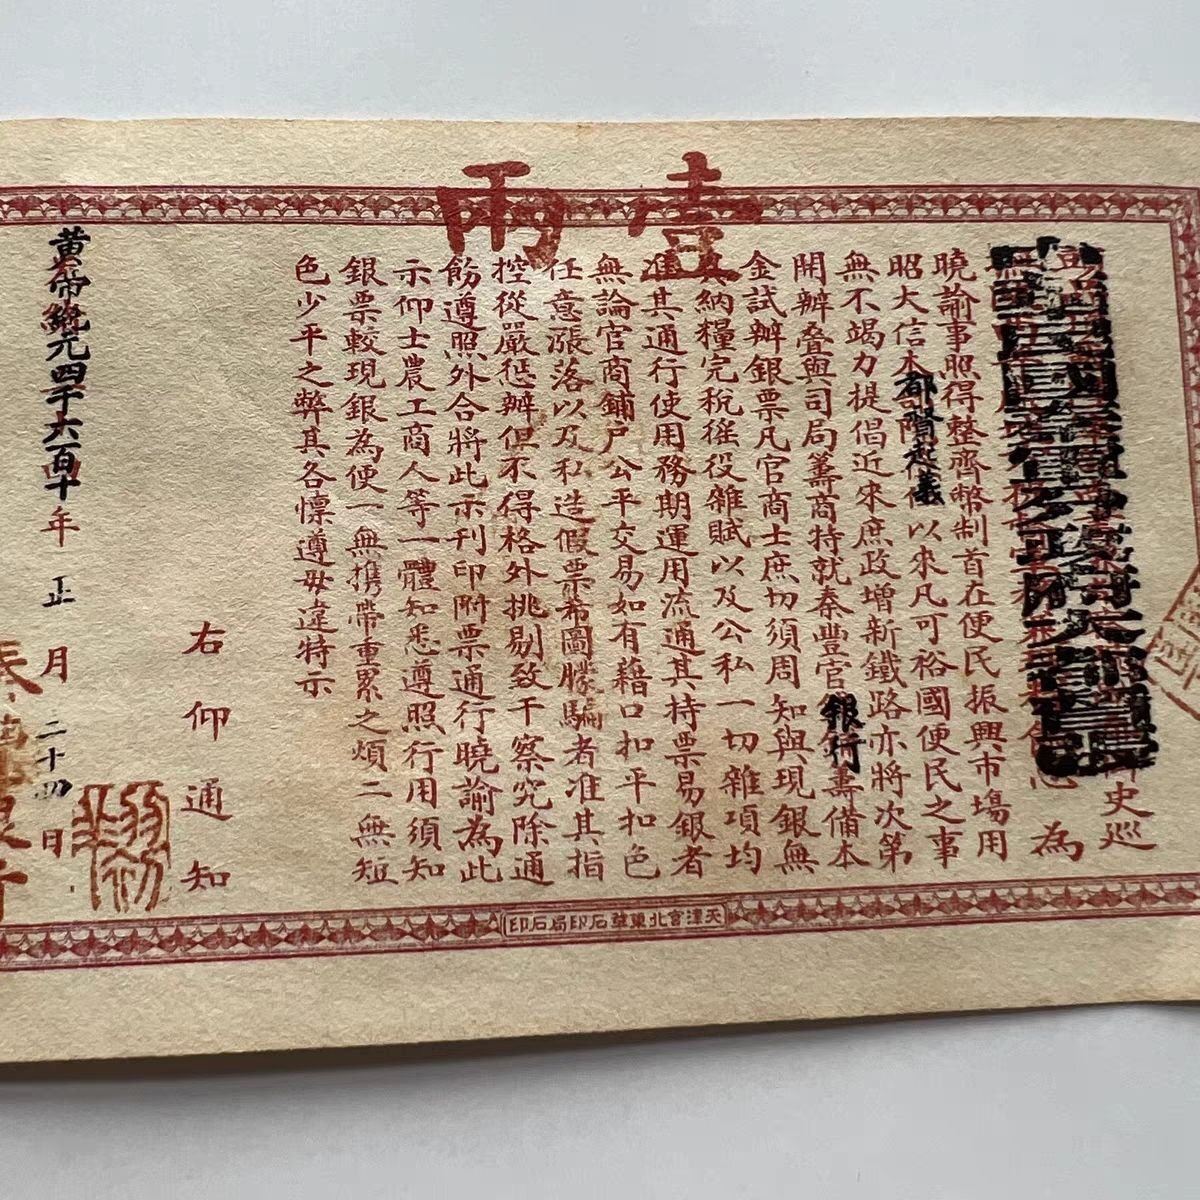 壹兩
史巡
為
曉諭事照得整齊幣制首在便民振興市場用
昭大信本都督起義以來凡可裕國便民之事
無不竭力提倡近來庶政增新鐵路亦將次第
開辦叠與司局籌商特就秦豐官銀行籌備本
金試辦銀票凡官商士庶切須周知與現銀無
納糧完稅徭役雜賦以及公私一切雜項均
准其通行使用務期運用流通其持票易銀者
無論官商鋪户公平交易如有藉口扣平扣色
任意漲落以及私造假票希圖朦騙者准其指
控從嚴懲辦但不得格外挑剔致干察究除通
飭遵照外合將此示刊印附票通行曉諭為此
示仰士農工商人等一體知悉遵照行用須知
銀票較現銀為便一無携帶重累之煩二無短
色少平之弊其各懍遵毋違特示
右仰通知
黄帝紀元四千六百十年正月二十四日
天津宮北東華石印局石印